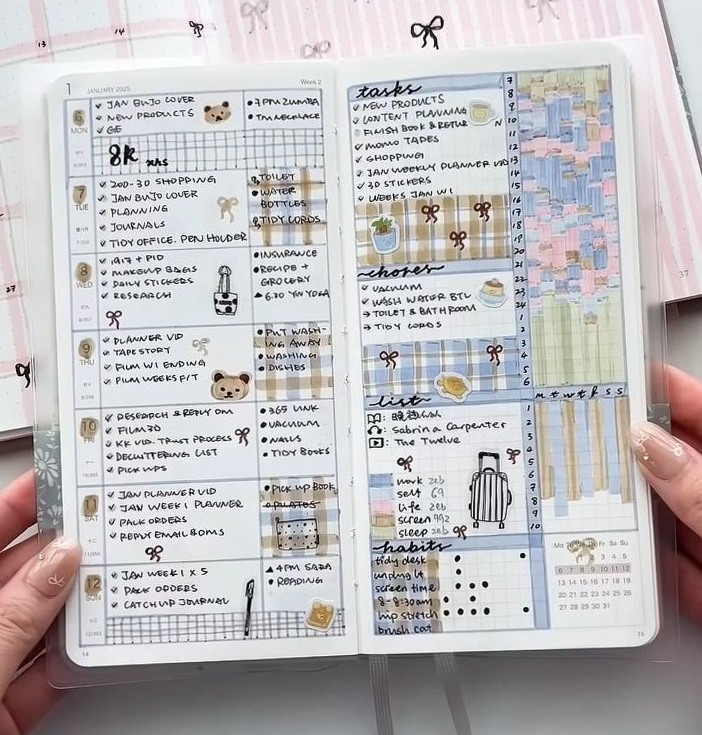 1 JANUARY 2025 Week 2
6 MON
✓ JAN BUJO COVER
✓ NEW PRODUCTS
✓ GE
• 7PM ZUMBA
• TM NECKLACE
8K xhs
7 TUE
✓ 200-30 SHOPPING
✓ JAN BUJO COVER
✓ PLANNING
✓ JOURNALS
✓ TIDY OFFICE. PEN HOLDER
TOILET
• WATER
BOTTLES
TIDY CORDS
8 WED
✓ 1917 + PID
✓ MAKEUP BAGS
✓ DAILY STICKERS
✓ RESEARCH
• INSURANCE
• RECIPE +
GROCERY
▲ 6.30 YIN YOGA
9 THU
✓ PLANNER VID
✓ TAPE STORY
✓ FILM W1 ENDING
✓ FILM WEEKS F/T
• PUT WASH-
ING AWAY
• WASHING
• DISHES
10 FRI
✓ RESEARCH & REPLY DM
✓ FILM 3D
✓ KK VID. TRUST PROCESS
✓ DECLUTTERING LIST
✓ PICK UPS
• 365 LINK
• VACUUM
• NAILS
• TIDY BOOKS
11 SAT
✓ JAN PLANNER VID
✓ JAN WEEK 1 PLANNER
✓ PACK ORDERS
✓ REPLY EMAIL & DMS
• PICK UP BOOK
• PILATES
12 SUN
✓ JAN WEEK 1 X 5
✓ PACK ORDERS
✓ CATCH UP JOURNAL
▲ 4PM SARA
• READING
14
tasks
✓ NEW PRODUCTS
✓ CONTENT PLANNING
FINISH BOOK & RETURN
✓ MOMO TAPES
✓ SHOPPING
✓ JAN WEEKLY PLANNER VID
✓ 3D STICKERS
✓ WEEKS JAN W1
chores
✓ VACUUM
✓ WASH WATER BTL
→ TOILET & BATHROOM
→ TIDY CORDS
list
: Sabrina Carpenter
: The Twelve
work
self
life
screen
sleep
habits
tidy desk
screen time
8-8:30am
hip stretch
brush cat
7
8
9
10
11
12
13
14
15
16
17
18
19
20
21
22
23
24
1
2
3
4
5
6
m t w t f s s
1
2
3
4
5
6
7
8
9
10
Mo Fr Sa Su
2 3 4 5
6 7 8 9 10 11 12
13 14 15 16 17 18 19
20 21 22 23 24 25 26
27 28 29 30 31
15
13
14
27
37